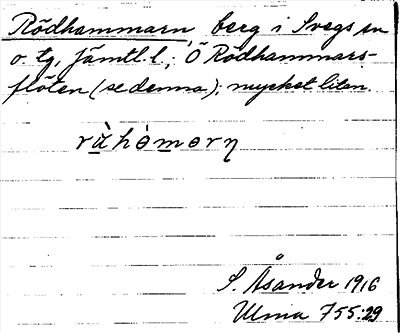 Rödhammarn, berg i Svegs sn
o. tg, Jämtl. l.; Ö Rödhammars-
flöten (se denna); mycket liten.
S. Åsander 1916
Ulma 755:29